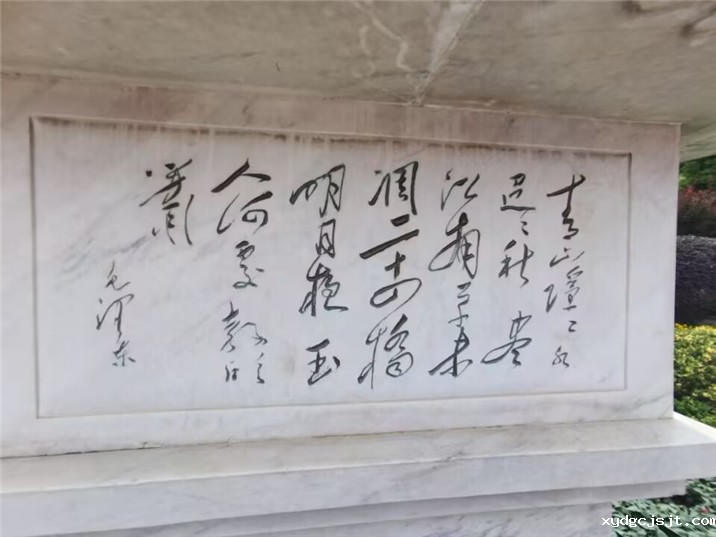 青山隱〻水
迢〻秋尽
江南草未
凋二十四橋
明月夜玉
人何處教吹
簫
毛泽东
xydgcjsjt.com